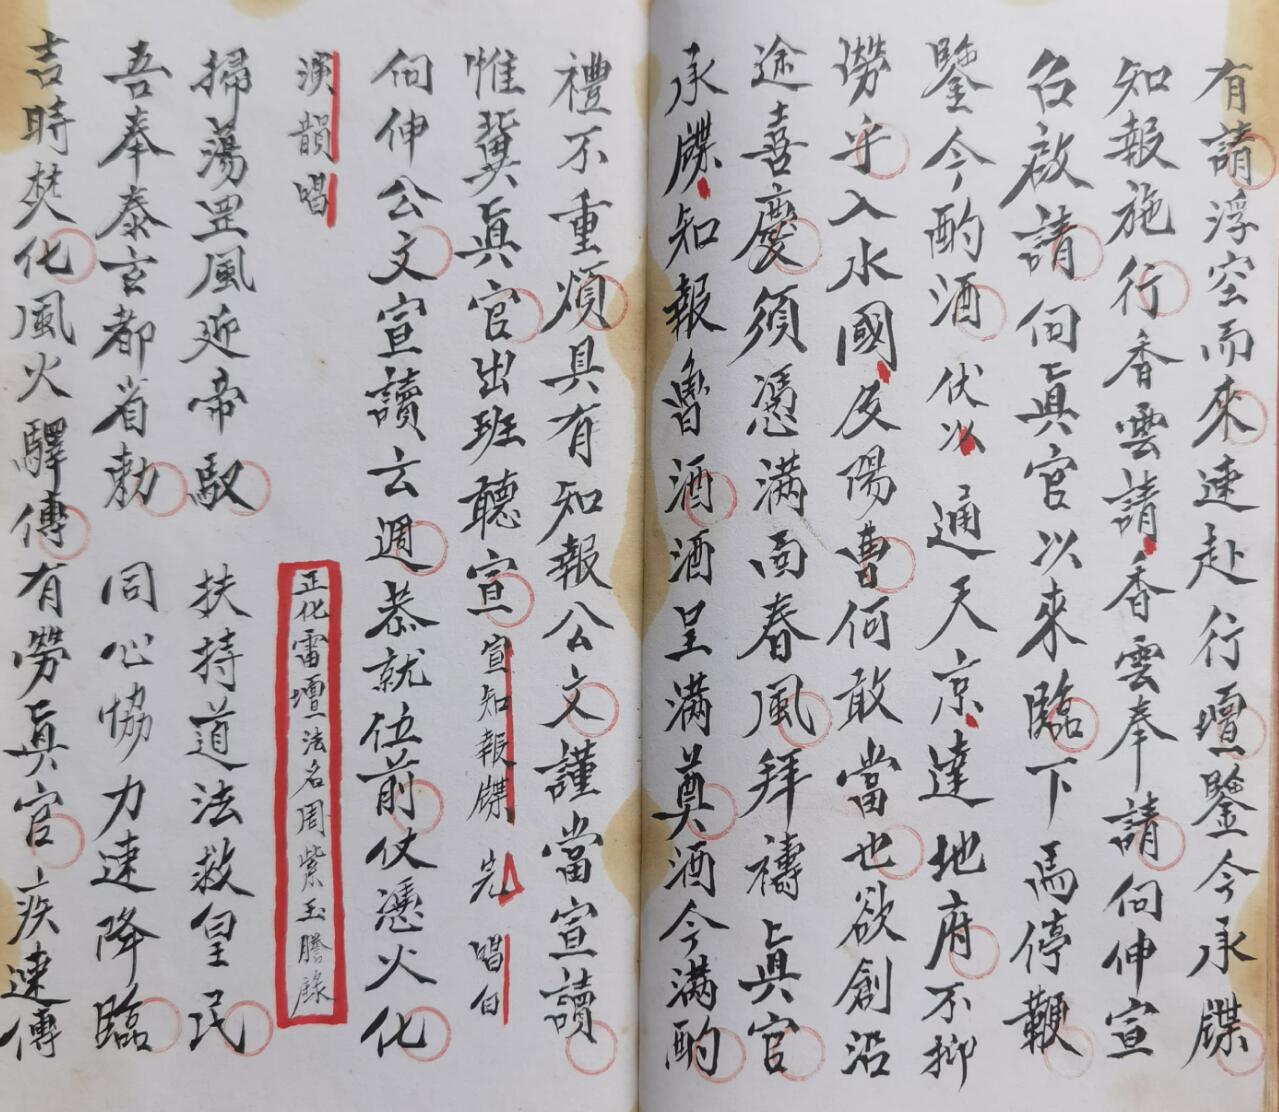 有請浮空而來速赴行壇鑒今承牒
知報施行香雲請香雲奉請向伸宣
召啟請向真官以來臨下馬停鞭
鑒今酌酒伏以通天京達地府不抑
勞乎入水國反陽曹何敢當也欲創沿
途喜慶須憑满面春風拜禱真官
承牒知報魯酒酒呈满奠酒今满酌
禮不重煩具有知報公文謹當宣讀
惟冀真官出班聽宣宣知報牒完唱白
向伸公文宣讀云週恭就伍前仗憑火化
演韻唱
正化雷壇法名周紫玉謄錄
掃蕩罡風迎帝馭扶持道法救皇民
吾奉泰玄都省勅同心恊力速降臨
吉時焚化風火驛傳有勞真官疾速傳